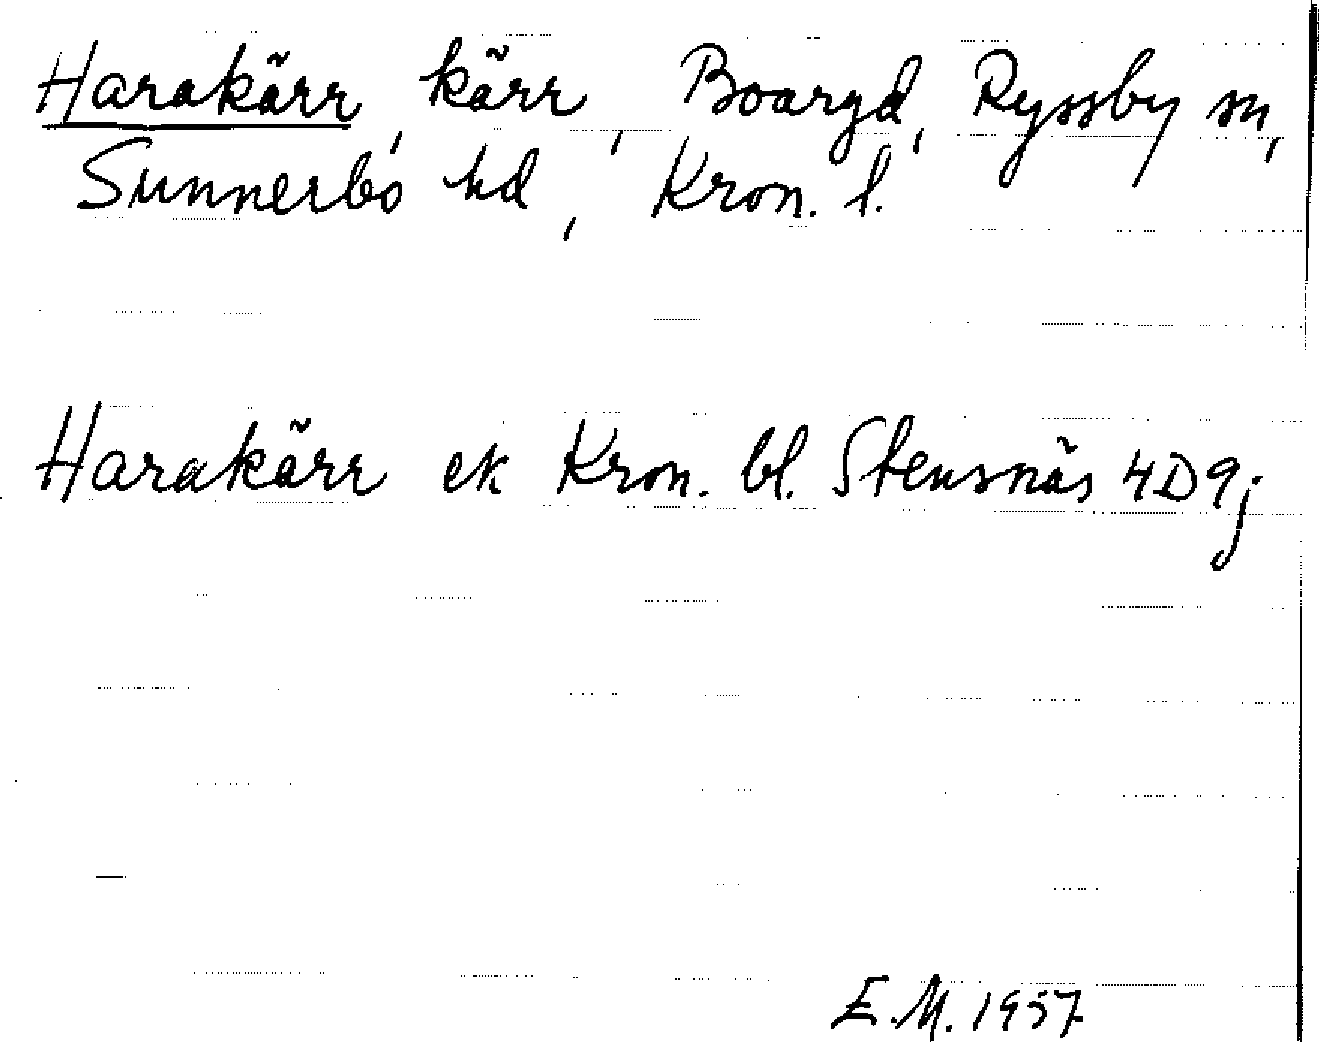 Harakärr, kärr, Boaryd, Ryssby sn,
Sunnerbo hd, Kron. l.
Harakärr ek Kron. bl. Stensnäs 4D9j
E.M. 1957